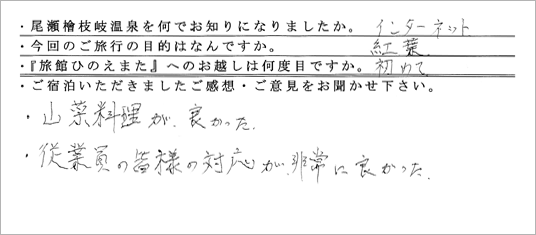 ・尾瀬檜枝岐温泉を何でお知りになりましたか。 インターネット
・今回のご旅行の目的はなんですか。 紅葉
・『旅館ひのえまた』へのお越しは何度目ですか。 初めて
・ご宿泊いただきましたご感想・ご意見をお聞かせ下さい。
・山菜料理が、良かった。
・従業員の皆様の対応が、非常に良かった。